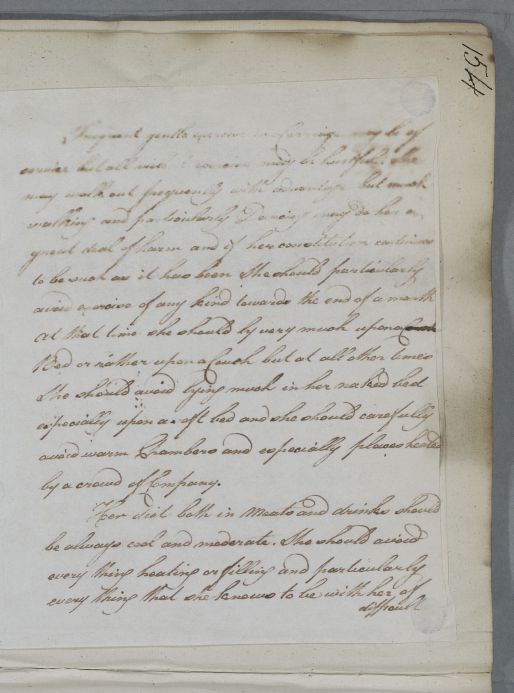 154
Frequent gentle exercise in a carriage may be of
service but all violent exercise may be hurtful. She
may walk out frequently with advantage but much
walking and particularly Dancing may do her a
great deal of harm and if her constitution continues
to be such as it has been She should particularly
avoid exercise of any kind towards the end of a month
At that time she should ly very much upon a
Bed or rather upon a Couch but at all other times
She should avoid lying much in her naked bed
especially upon a soft bed and she should carefully
avoid warm Chambers and especially places heated
by a crowd of Company.
Her diet both in Meats and drinks should
be always cool and moderate. She should avoid
every thing heating or filling and particularly
every thing that she knows to be with her of
difficult